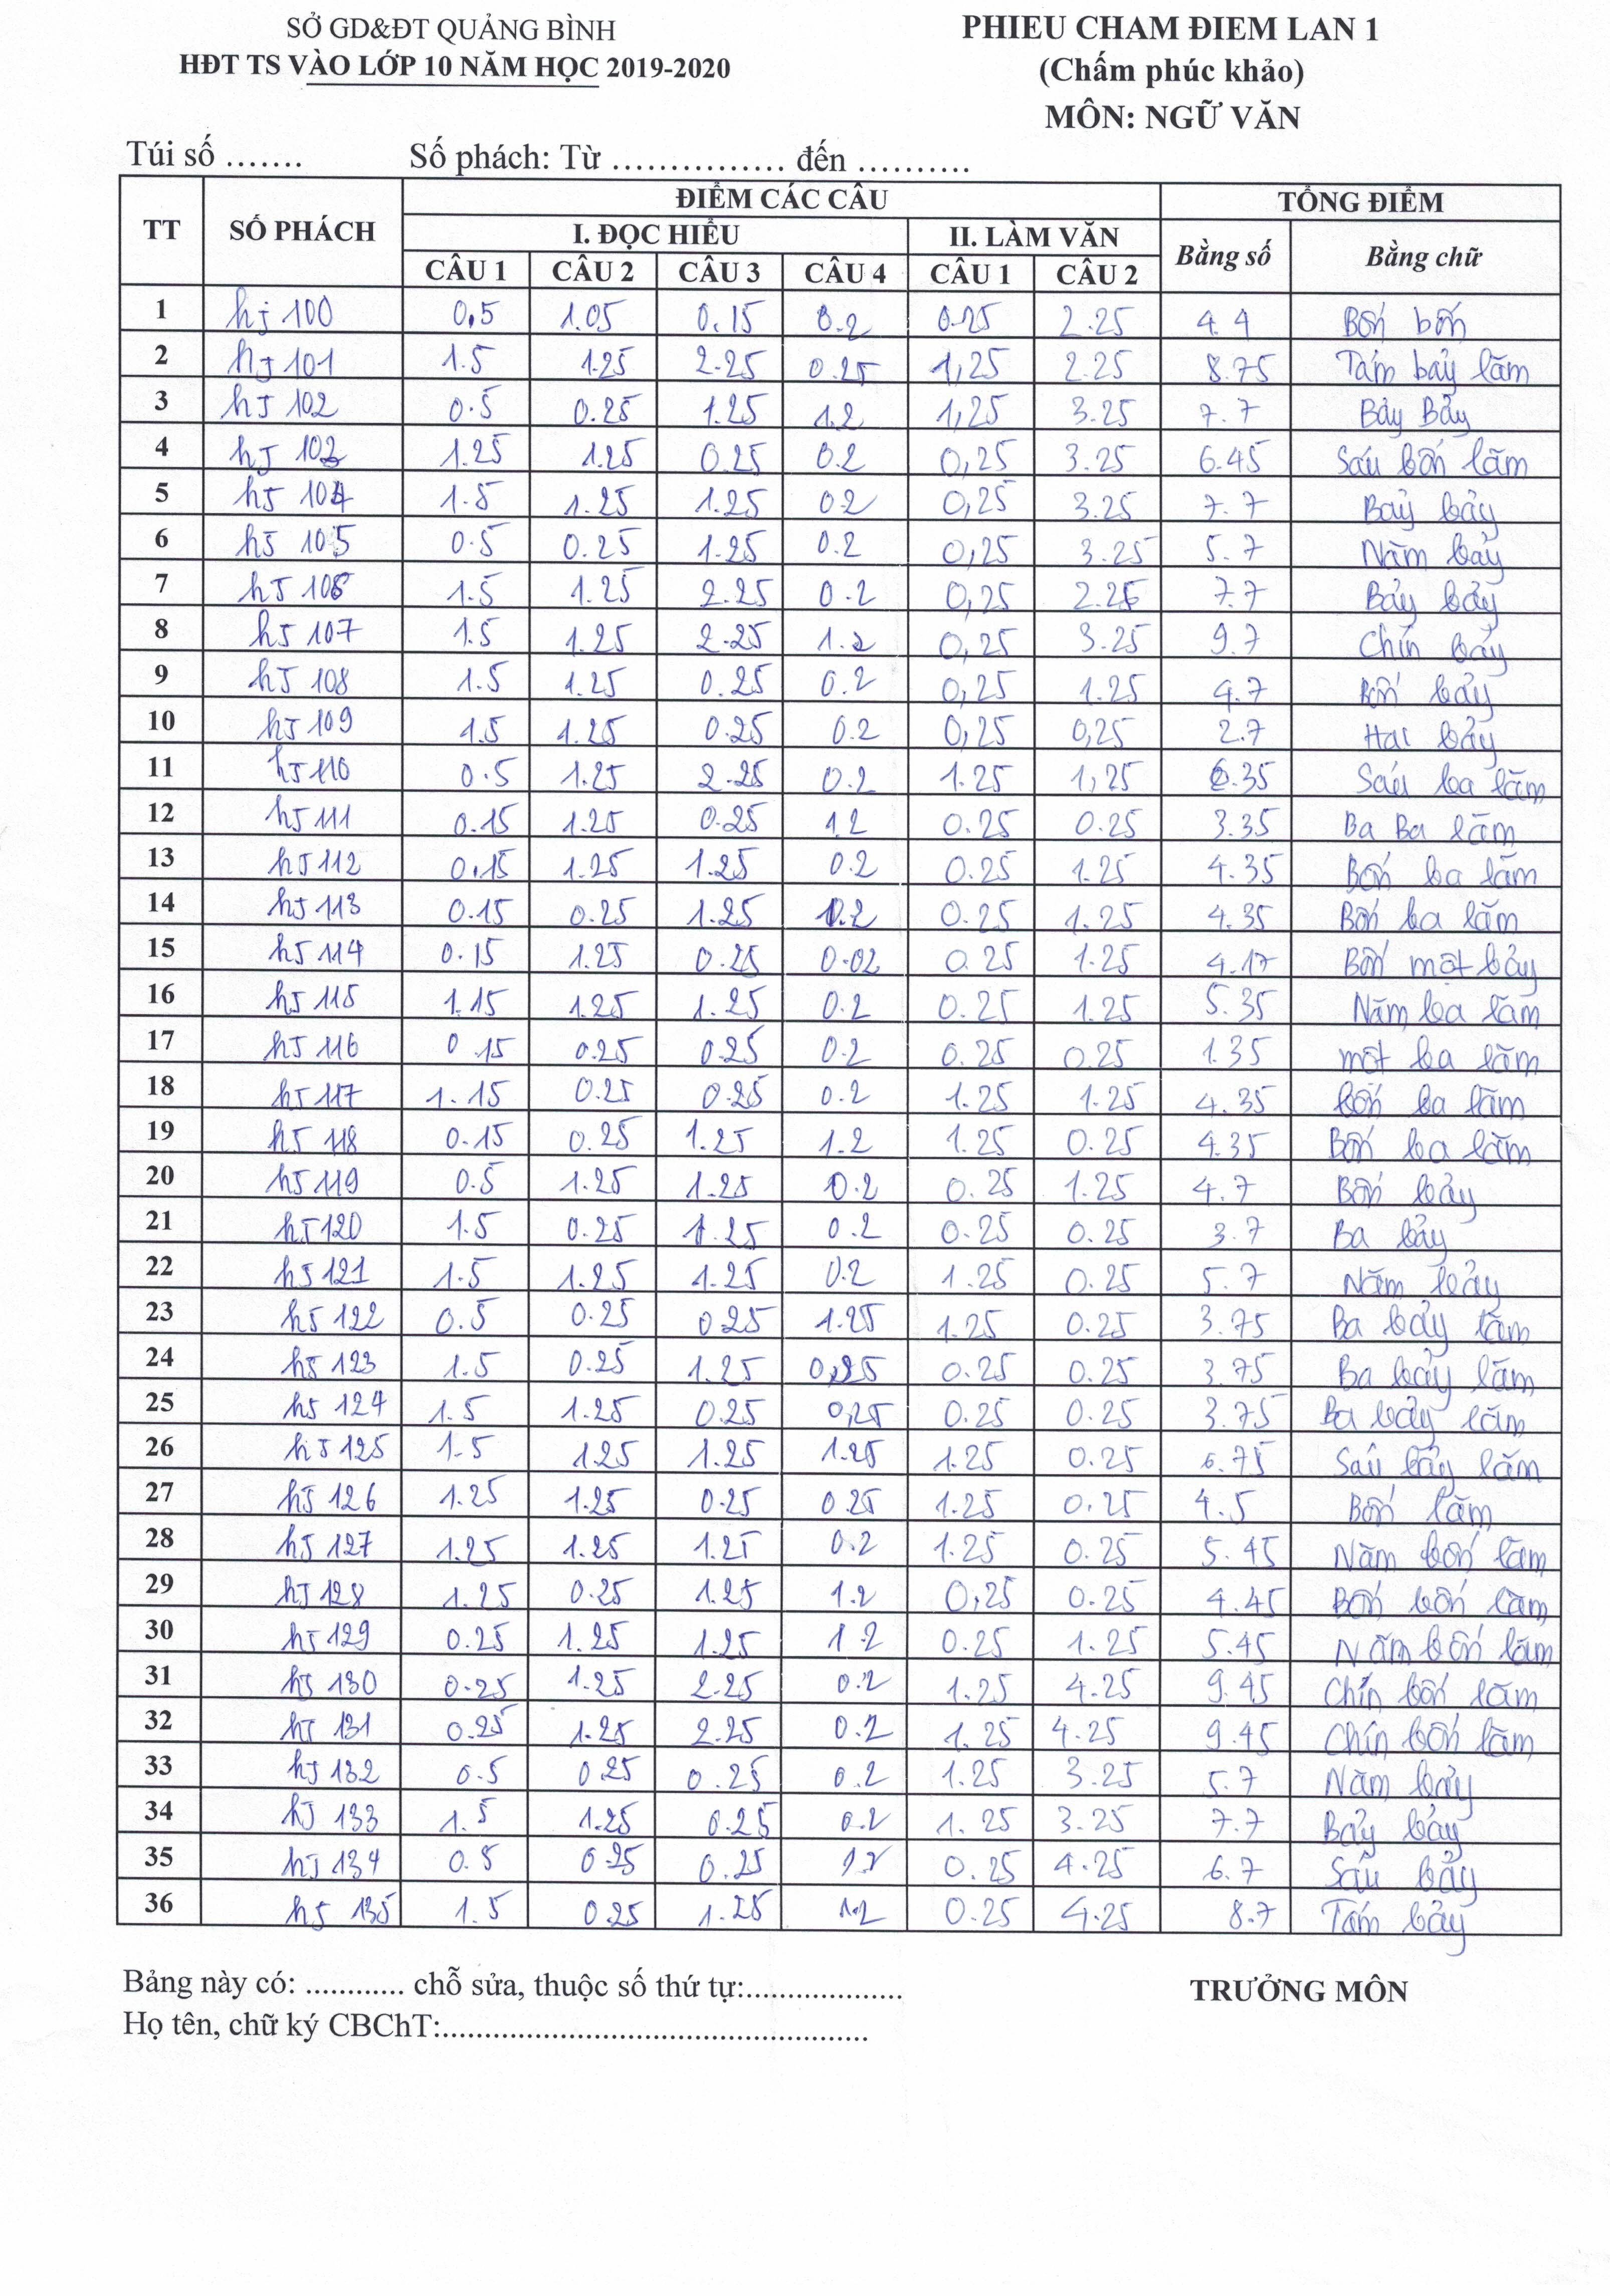 SỞ GD&ĐT QUẢNG BÌNH
HĐT TS VÀO LỚP 10 NĂM HỌC 2019-2020
PHIEU CHAM ĐIEM LAN 1
(Chấm phúc khảo)
MÔN: NGỮ VĂN
Túi số ....... Số phách: Từ ............... đến ..........
TT SỐ PHÁCH ĐIỂM CÁC CÂU TỔNG ĐIỂM
I. ĐỌC HIỂU II. LÀM VĂN Bằng số Bằng chữ
CÂU 1 CÂU 2 CÂU 3 CÂU 4 CÂU 1 CÂU 2
1 hj 100 0,5 1.05 0.15 0.2 0.25 2.25 4.4 Bốn bốn
2 hJ 101 1.5 1.25 2.25 0.25 1,25 2.25 8.75 Tám bảy lăm
3 hJ 102 0.5 0.25 1.25 1.2 1,25 3.25 7.7 Bảy Bảy
4 hJ 103 1.25 1.25 0.25 0.2 0,25 3.25 6.45 Sáu bốn lăm
5 hJ 104 1.5 1.25 1.25 0.2 0,25 3.25 7.7 Bảy bảy
6 hJ 105 0.5 0.25 1.25 0.2 0,25 3.25 5.7 Năm bảy
7 hJ 106 1.5 1.25 2.25 0.2 0,25 2.25 7.7 Bảy bảy
8 hJ 107 1.5 1.25 2.25 1.2 0,25 3.25 9.7 Chín bảy
9 hJ 108 1.5 1.25 0.25 0.2 0,25 1.25 4.7 Bốn bảy
10 hJ 109 1.5 1.25 0.25 0.2 0,25 0,25 2.7 Hai bảy
11 hJ 110 0.5 1.25 2.25 0.2 1.25 1,25 6.35 Sáu ba lăm
12 hJ 111 0.15 1.25 0.25 1.2 0.25 0.25 3.35 Ba Ba lăm
13 hJ 112 0.15 1.25 1.25 0.2 0.25 1.25 4.35 Bốn ba lăm
14 hJ 113 0.15 0.25 1.25 1.2 0.25 1.25 4.35 Bốn ba lăm
15 hJ 114 0.15 1.25 0.25 0.02 0.25 1.25 4.17 Bốn một bảy
16 hJ 115 1.15 1.25 1.25 0.2 0.25 1.25 5.35 Năm ba lăm
17 hJ 116 0.15 0.25 0.25 0.2 0.25 0.25 1.35 một ba lăm
18 hJ 117 1.15 0.25 0.25 0.2 1.25 1.25 4.35 bốn ba lăm
19 hJ 118 0.15 0.25 1.25 1.2 1.25 0.25 4.35 Bốn ba lăm
20 hJ 119 0.5 1.25 1.25 0.2 0.25 1.25 4.7 Bốn bảy
21 hJ 120 1.5 0.25 1.25 0.2 0.25 0.25 3.7 Ba bảy
22 hJ 121 1.5 1.25 1.25 0.2 1.25 0.25 5.7 Năm bảy
23 hJ 122 0.5 0.25 0.25 1.25 1.25 0.25 3.75 Ba bảy lăm
24 hJ 123 1.5 0.25 1.25 0,25 0.25 0.25 3.75 Ba bảy lăm
25 hJ 124 1.5 1.25 0.25 0,25 0.25 0.25 3.75 Ba bảy lăm
26 hJ 125 1.5 1.25 1.25 1.25 1.25 0.25 6.75 Sáu bảy lăm
27 hJ 126 1.25 1.25 0.25 0.25 1.25 0.25 4.5 Bốn lăm
28 hJ 127 1.25 1.25 1.25 0.2 1.25 0.25 5.45 Năm bốn lăm
29 hJ 128 1.25 0.25 1.25 1.2 0,25 0.25 4.45 Bốn bốn lăm
30 hJ 129 0.25 1.25 1.25 1.2 0.25 1.25 5.45 Năm bốn lăm
31 hJ 130 0.25 1.25 2.25 0.2 1.25 4.25 9.45 Chín bốn lăm
32 hJ 131 0.25 1.25 2.25 0.2 1.25 4.25 9.45 Chín bốn lăm
33 hJ 132 0.5 0.25 0.25 0.2 1.25 3.25 5.7 Năm bảy
34 hJ 133 1.5 1.25 0.25 0.2 1.25 3.25 7.7 Bảy bảy
35 hJ 134 0.5 0.25 0.25 1.2 0.25 4.25 6.7 Sáu bảy
36 hJ 135 1.5 0.25 1.25 1.2 0.25 4.25 8.7 Tám bảy
Bảng này có: ............ chỗ sửa, thuộc số thứ tự:...................
TRƯỞNG MÔN
Họ tên, chữ ký CBChT:....................................................